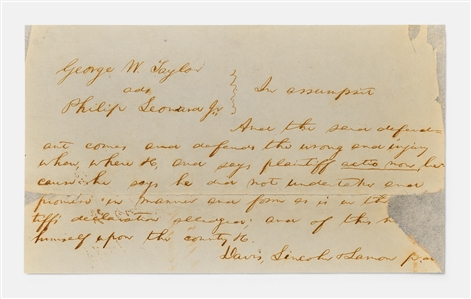 George W. Taylor
ads
Philip Leonard Jr.
In assumpsit
And the said defend-
ant comes and defends the wrong and injury
when, where &c, and says plaintiff actio non, be
cause he says he did not undertake and
promise in manner and form as is in the
tiffs declaration alleged: and of this
himself upon the country, &c.
Davis, Lincoln & Lamon